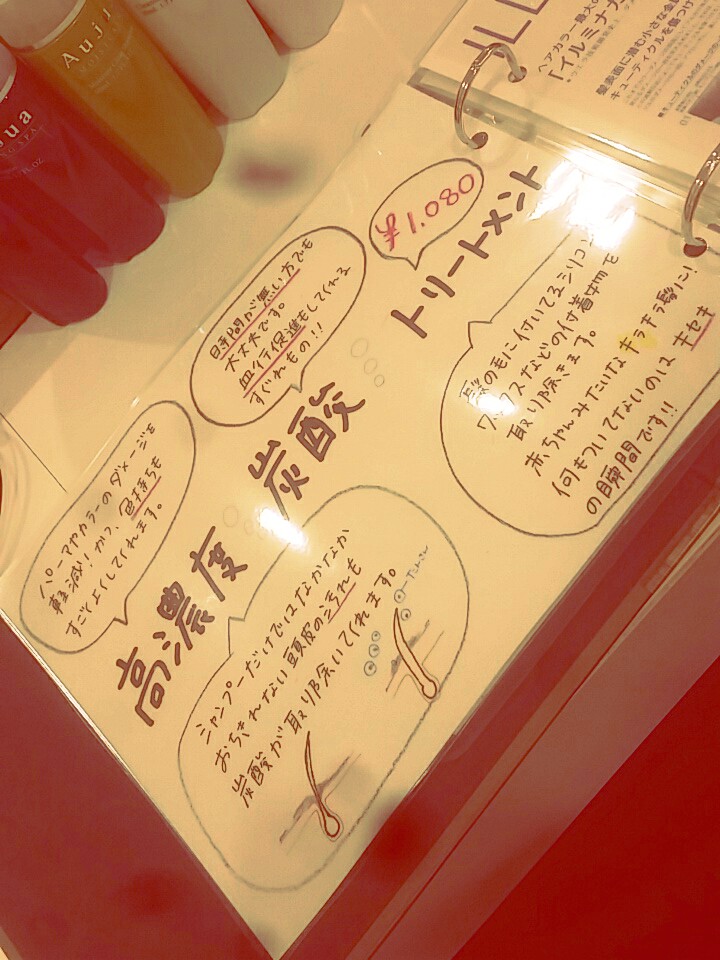 高濃度 炭酸 トリートメント
¥1,080
パーマやカラーのダメージを
軽減!かつ、色持ちも
すごくよくしてくれます。
時間が無い方でも
大丈夫です。
血行促進もしてくれる
すぐれもの!!
髪の毛に付いてるシリコン
ワックスなどの付着物を
取り除きます。
赤ちゃんみたいなキラキラ髪に!
何もついてないのは キセキ
の瞬間です!!
シャンプーだけではなかなか
おちきれない頭皮の汚れも
炭酸が取り除いてくれます。
ILL
ヘアカラー最大の
「イルミナカ
髪表面に潜む小さな金属
キューティクルを傷つけ
Auju
ua